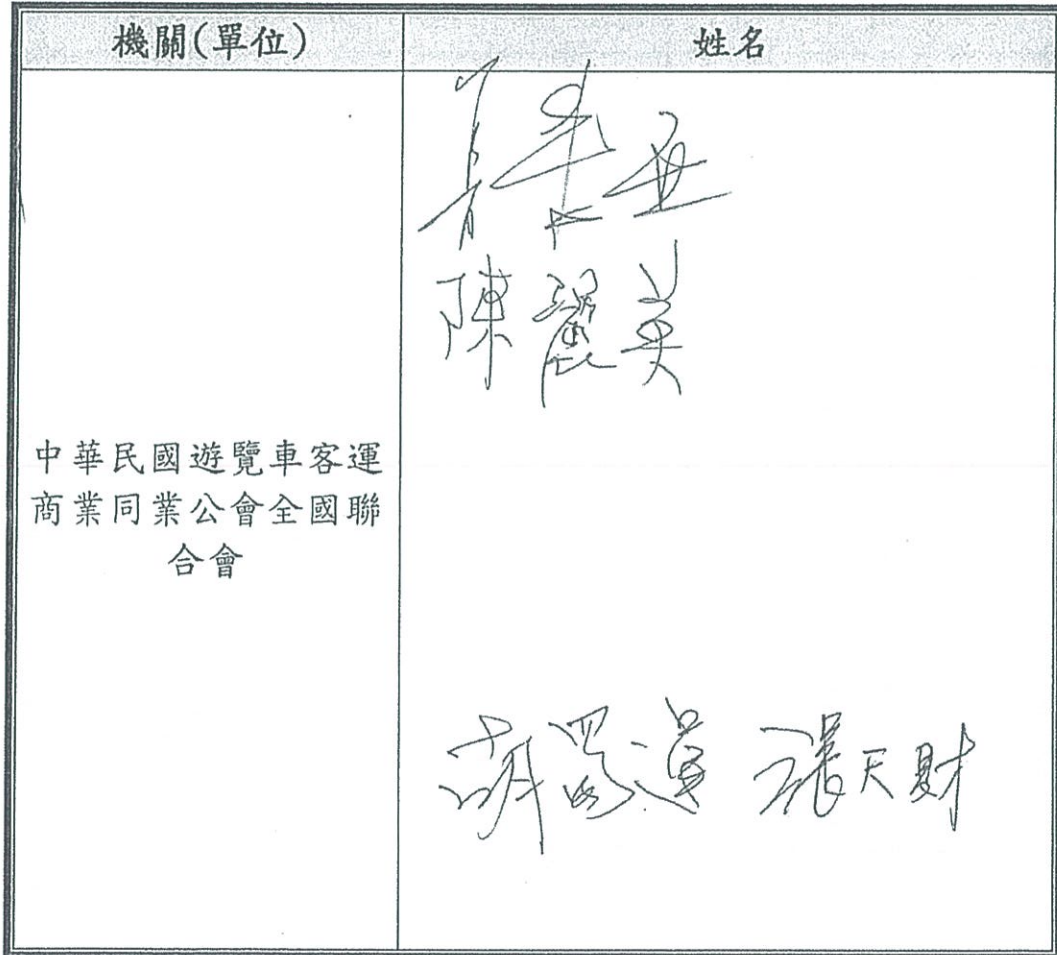 機關(單位)
姓名
中華民國遊覽車客運
商業同業公會全國聯
合會
陳麗英
張天財